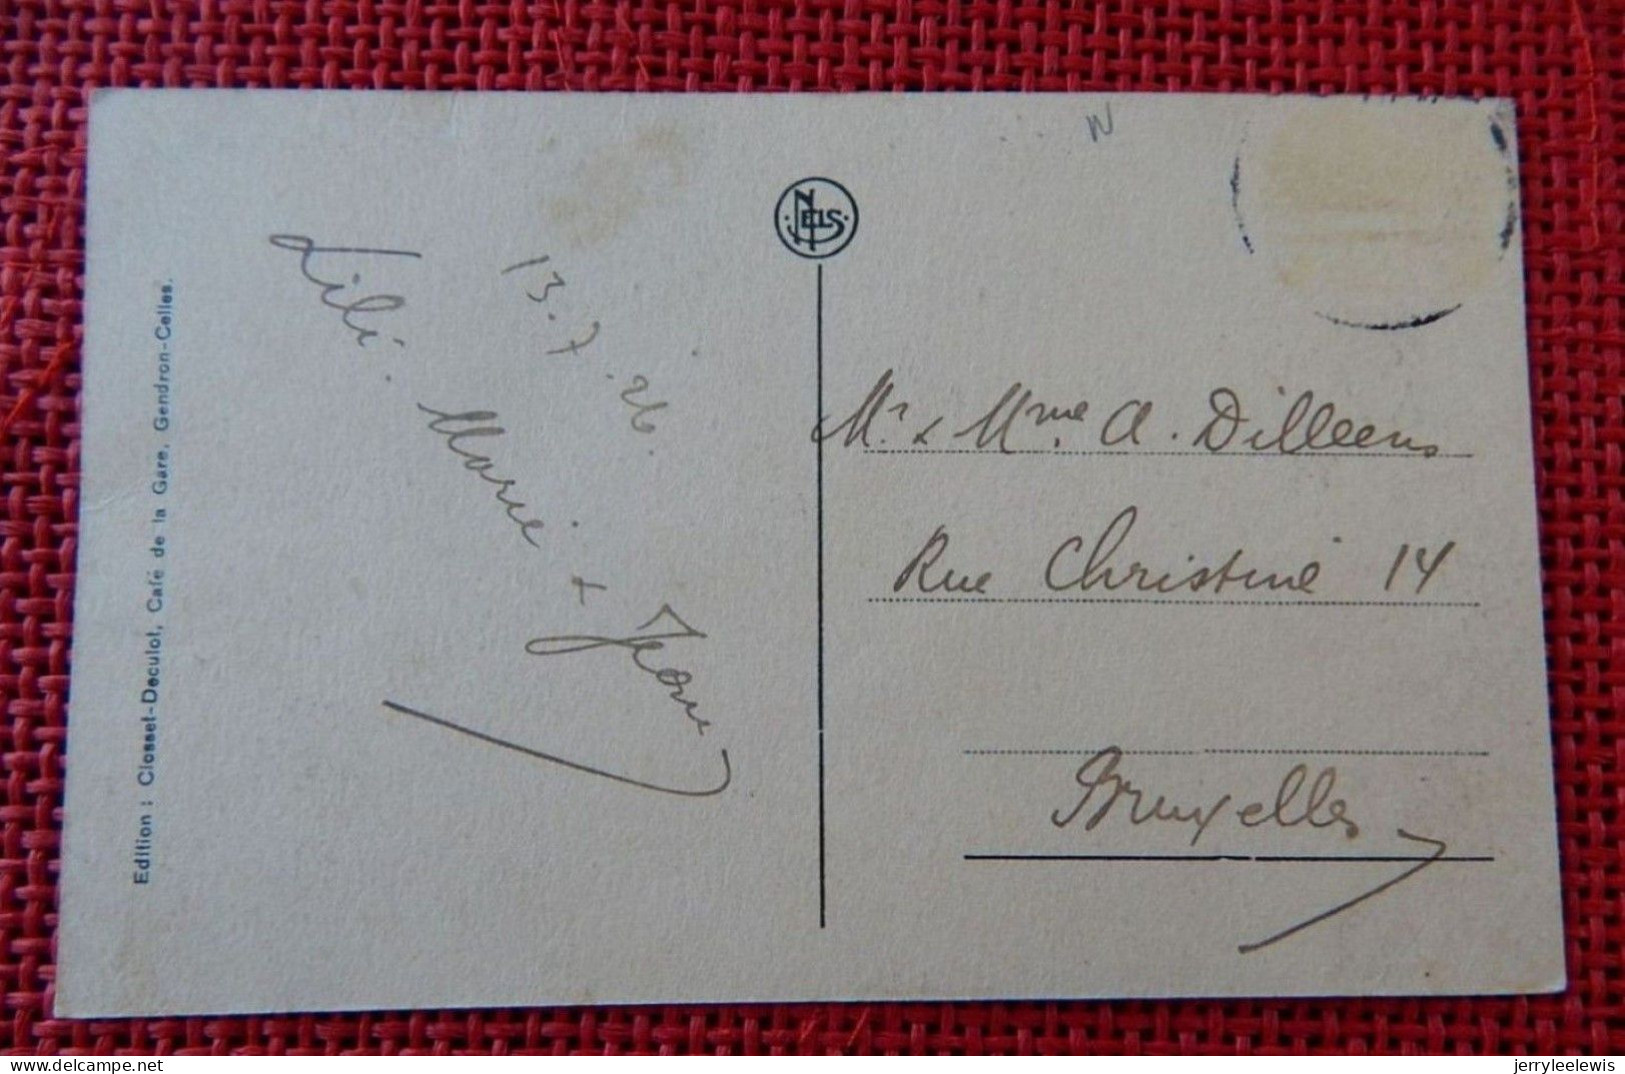 Edition : Closset-Deculot, Café de la Gare, Gendron-Celles.
13.7.26.
Lili. Marie &
NELS
Mr. & Mme. A. Dilleens
Rue Christine 14
Bruxelles
delcampe.net
jerryleelewis